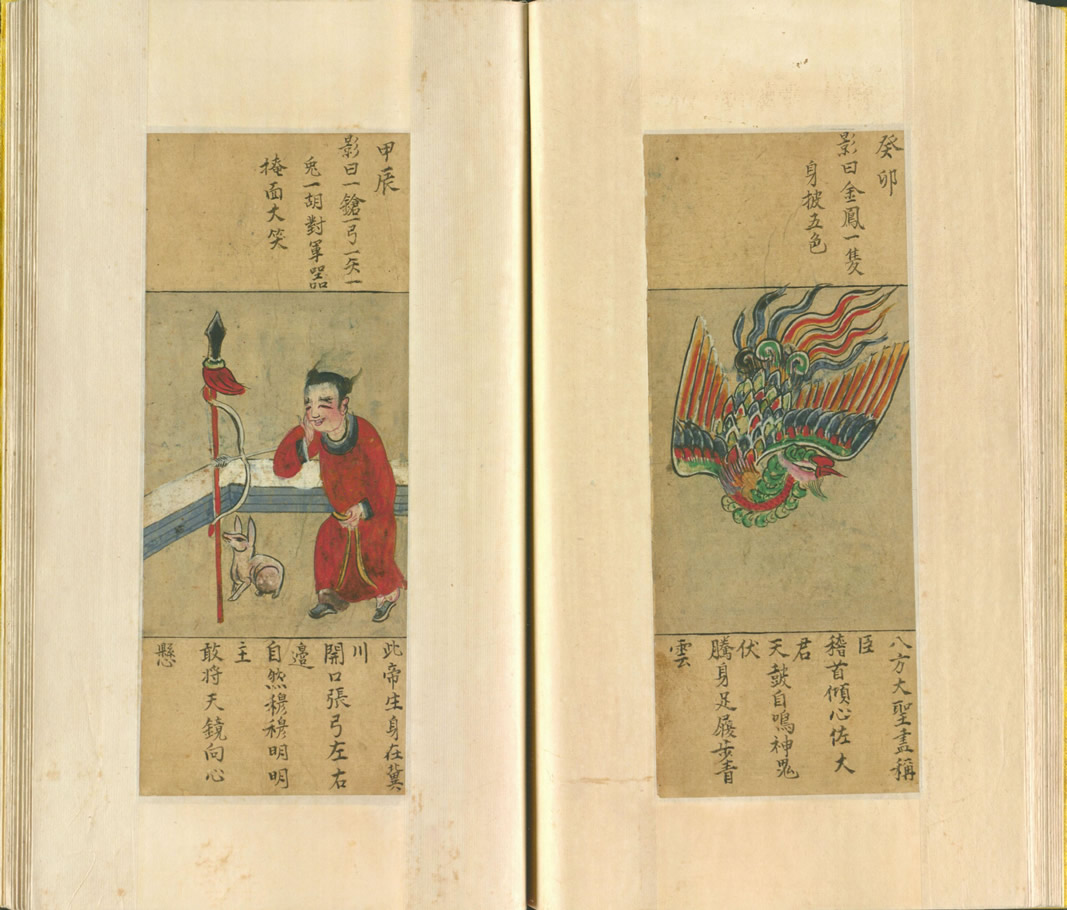 癸卯
影曰金鳳一隻
身披五色
八方大聖盡稱
臣
稽首傾心佐大
君
天鼓自鳴神鬼
伏
騰身足履步青
雲
甲辰
影曰一鎗一弓一矢一
兔一胡對軍器
掩面大笑
此帝生身在冀
川
開口張弓左右
邉
自然穆穆明明
主
敢将天鏡向心
懸